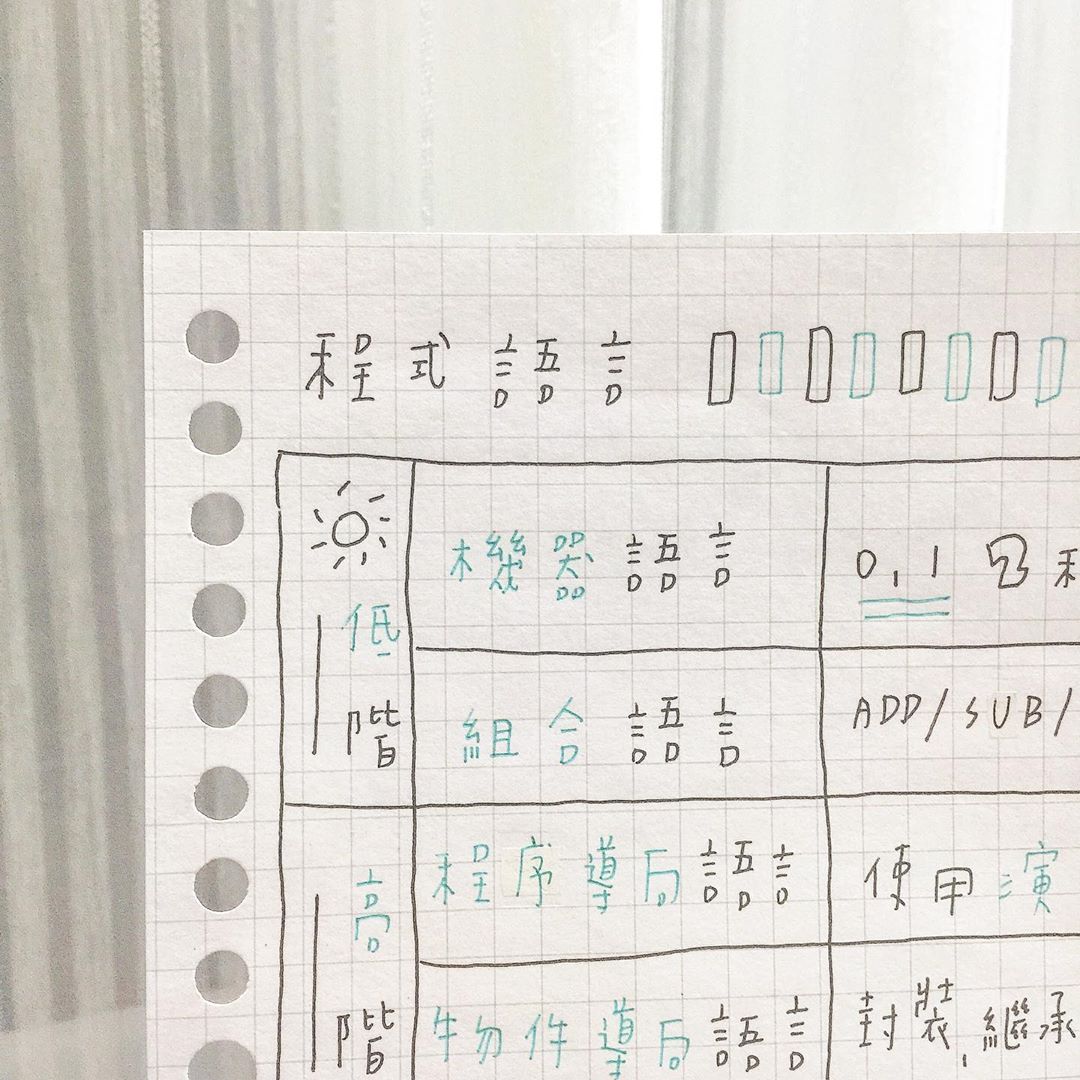 程式語言
低階
機器語言
0,1
組合語言
ADD/SUB/
高階
程序導向語言
使用演
物件導向語言
封裝,繼承